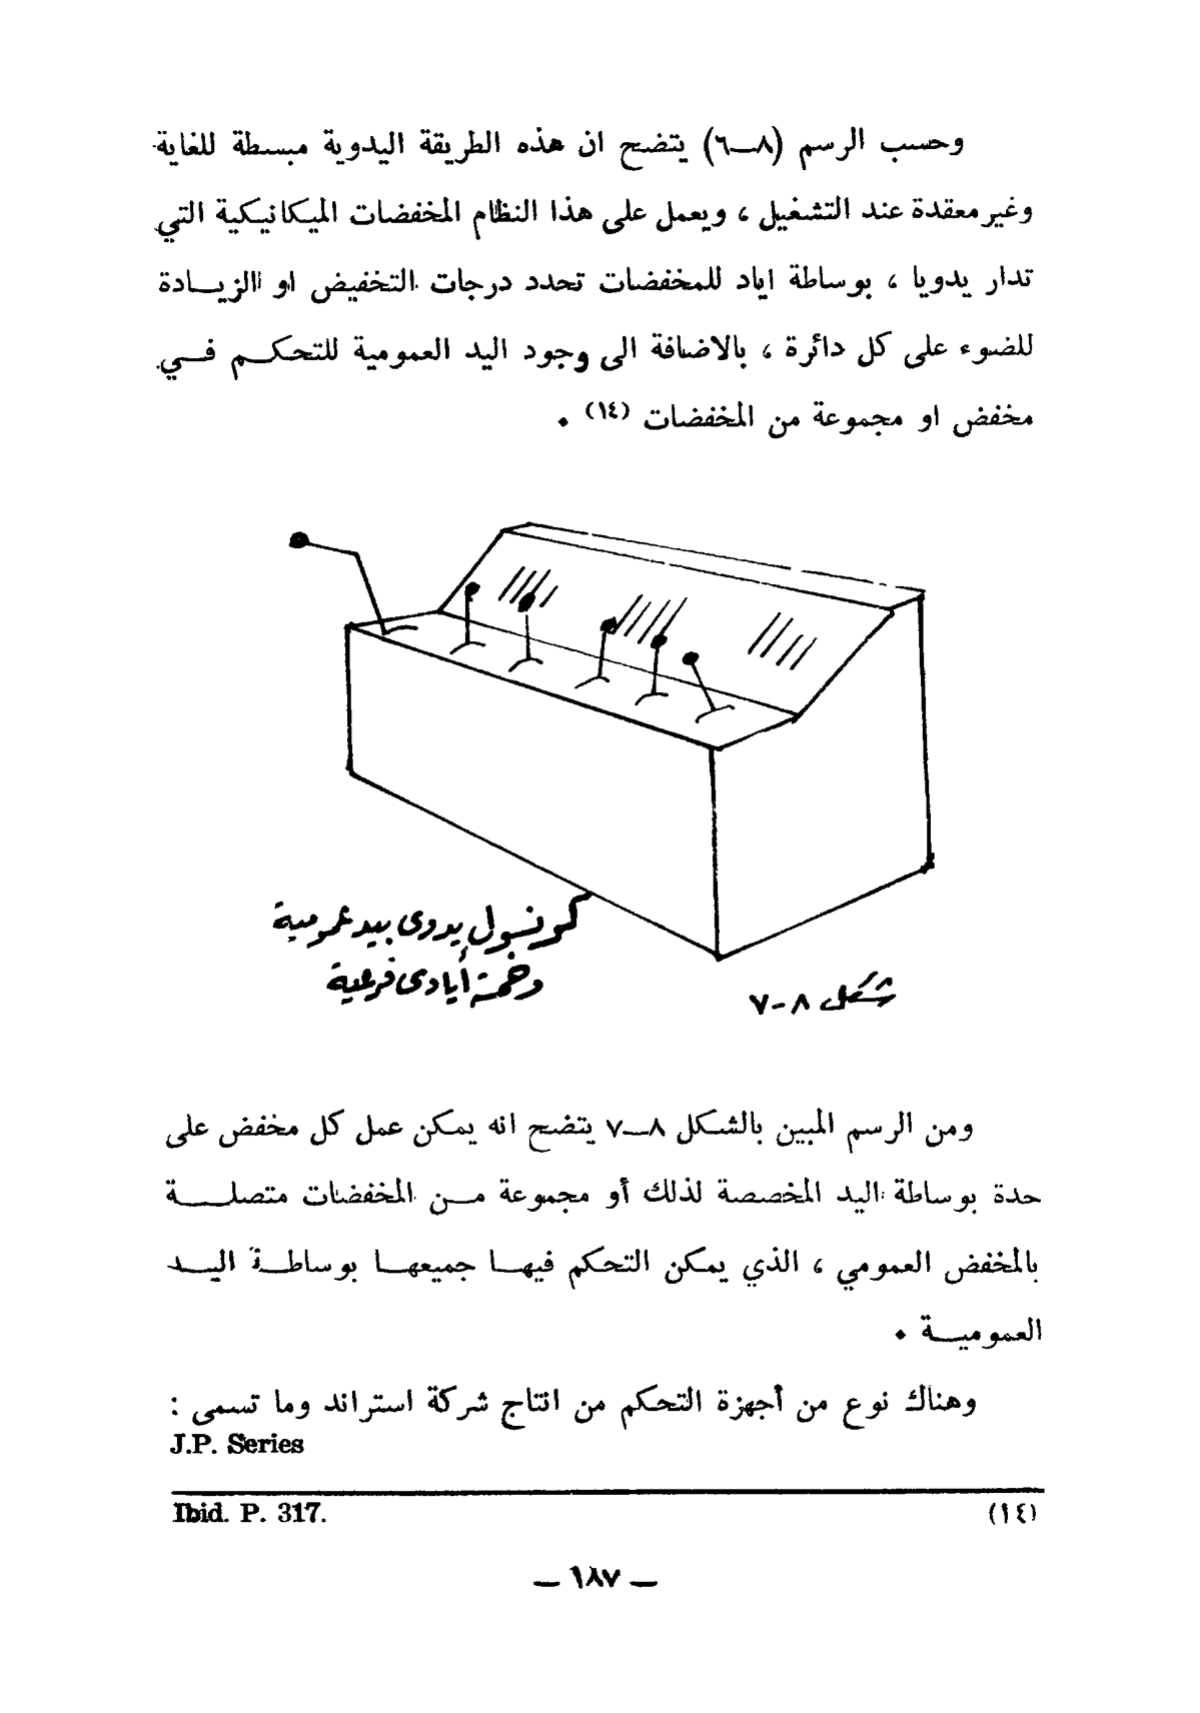 وحسب الرسم (٨ــ٦) يتضح ان هذه الطريقة اليدوية مبسطة للغاية
وغير معقدة عند التشغيل ، ويعمل على هذا النظام المخفضات الميكانيكية التي
تدار يدويا ، بوساطة اياد للمخفضات تحدد درجات التخفيض او الزيـــادة
للضوء على كل دائرة ، بالاضافة الى وجود اليد العمومية للتحكـــم فـــي
مخفض او مجموعة من المخفضات (١٤) .
كونسول يدوى بيد عمومية
وخمسة أيادى فرعية
شكل ٨-٧
ومن الرسم المبين بالشكل ٨ــ٧ يتضح انه يمكن عمل كل مخفض على
حدة بوساطة اليد المخصصة لذلك أو مجموعة مــن المخفضات متصلـــة
بالمخفض العمومي ، الذي يمكن التحكم فيهــا جميعهــا بوساطــة اليـــد
العموميـــة .
وهناك نوع من أجهزة التحكم من انتاج شركة استراند وما تسمى :
J.P. Series
(١٤) Ibid. P. 317.
— ١٨٧ —